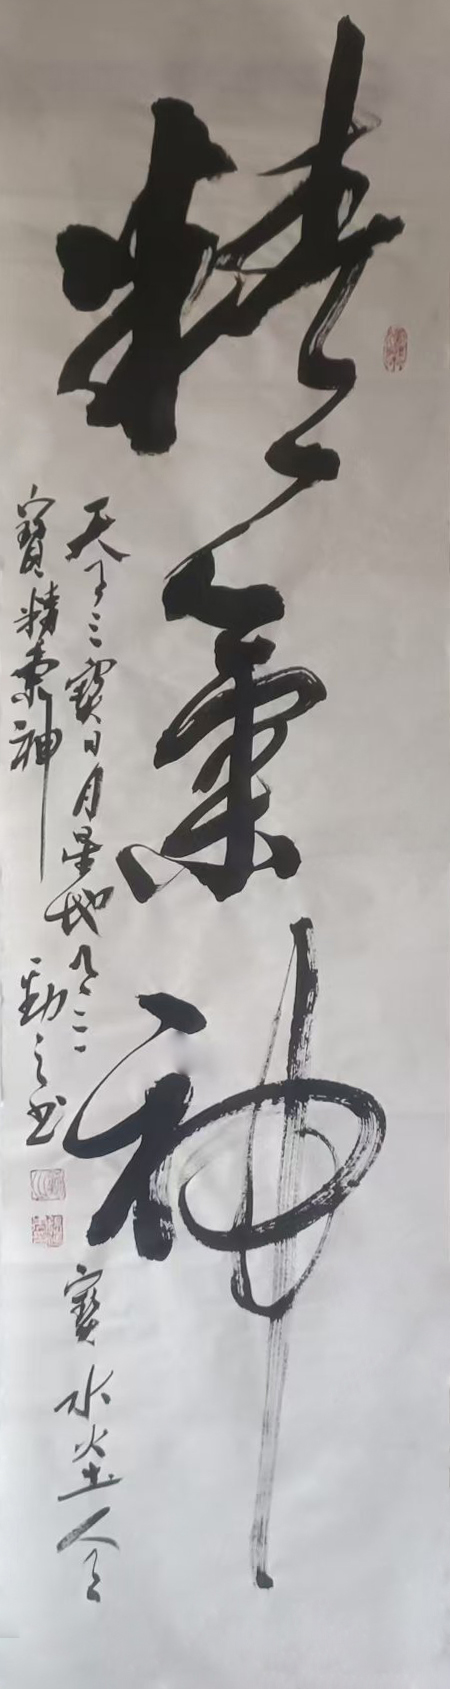 精氣神
天有三寶日月星地有三寶水火土人三
寶精氣神
勁之书